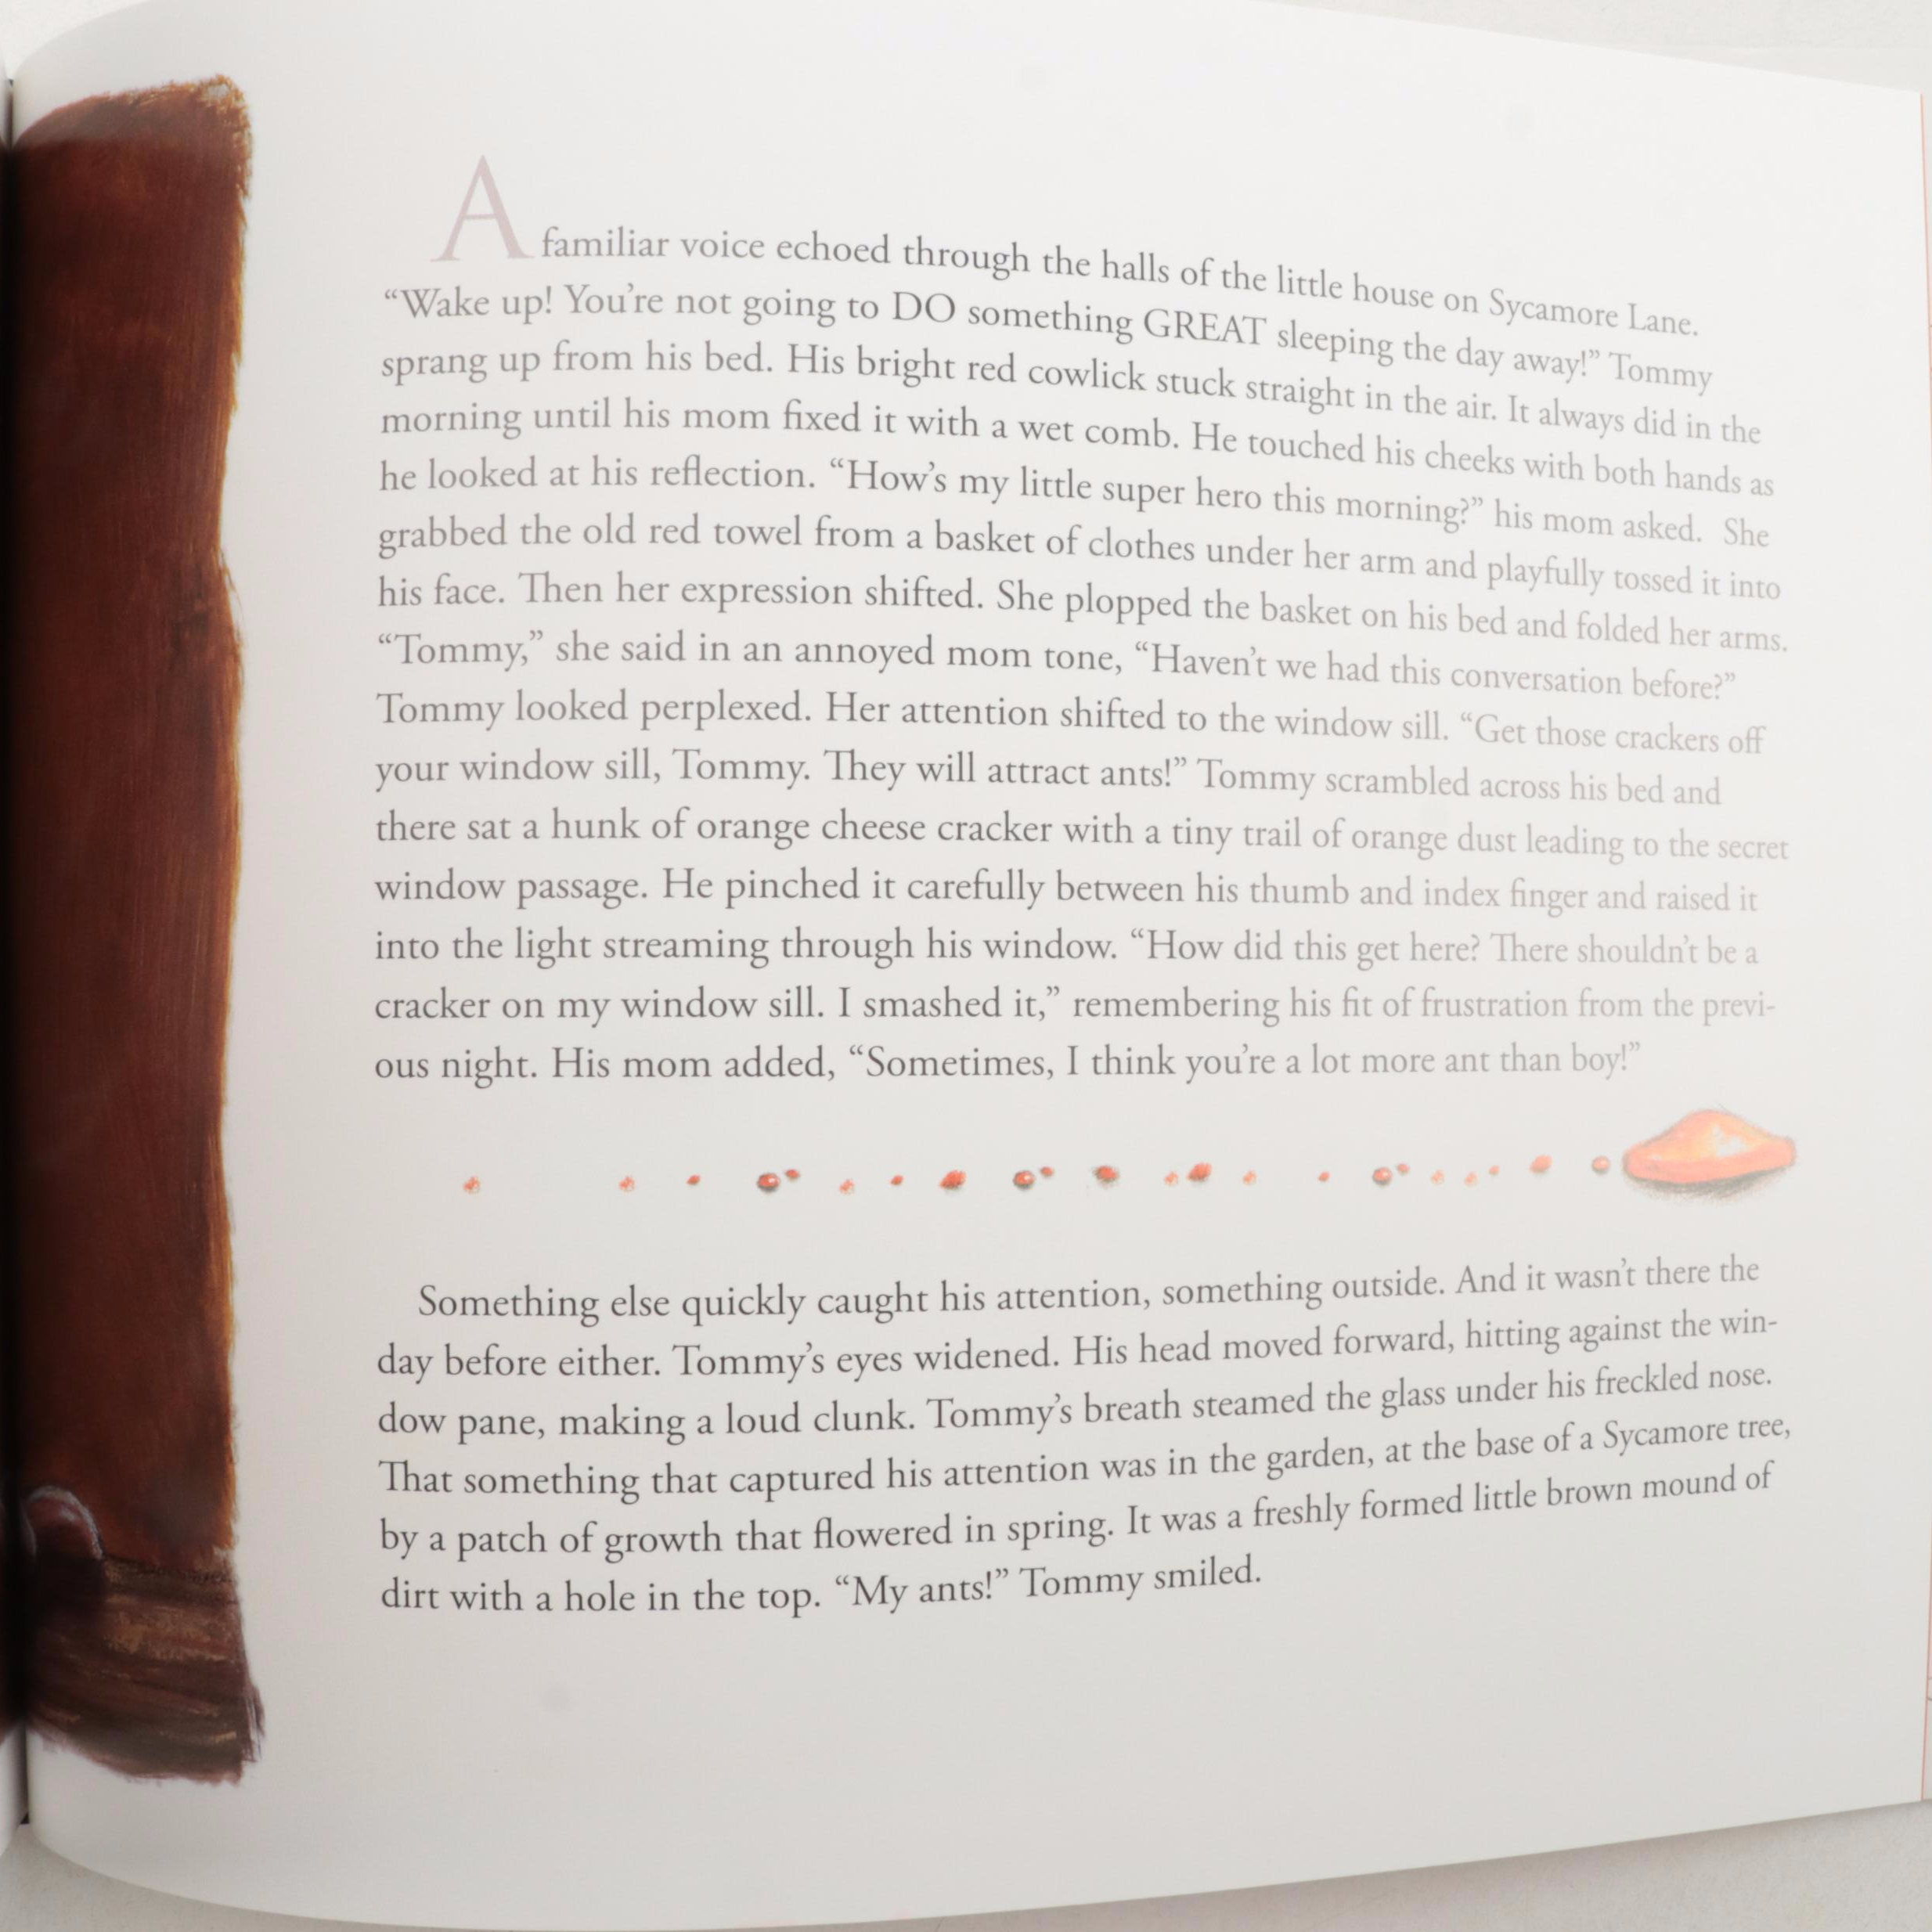 A familiar voice echoed through the halls of the little house on Sycamore Lane.
“Wake up! You’re not going to DO something GREAT sleeping the day away!” Tommy
sprang up from his bed. His bright red cowlick stuck straight in the air. It always did in the
morning until his mom fixed it with a wet comb. He touched his cheeks with both hands as
he looked at his reflection. “How’s my little super hero this morning?” his mom asked.  She
grabbed the old red towel from a basket of clothes under her arm and playfully tossed it into
his face. Then her expression shifted. She plopped the basket on his bed and folded her arms.
“Tommy,” she said in an annoyed mom tone, “Haven’t we had this conversation before?”
Tommy looked perplexed. Her attention shifted to the window sill. “Get those crackers off
your window sill, Tommy. They will attract ants!” Tommy scrambled across his bed and
there sat a hunk of orange cheese cracker with a tiny trail of orange dust leading to the secret
window passage. He pinched it carefully between his thumb and index finger and raised it
into the light streaming through his window. “How did this get here? There shouldn’t be a
cracker on my window sill. I smashed it,” remembering his fit of frustration from the previ-
ous night. His mom added, “Sometimes, I think you’re a lot more ant than boy!”
Something else quickly caught his attention, something outside. And it wasn’t there the
day before either. Tommy’s eyes widened. His head moved forward, hitting against the win-
dow pane, making a loud clunk. Tommy’s breath steamed the glass under his freckled nose.
That something that captured his attention was in the garden, at the base of a Sycamore tree,
by a patch of growth that flowered in spring. It was a freshly formed little brown mound of
dirt with a hole in the top. “My ants!” Tommy smiled.